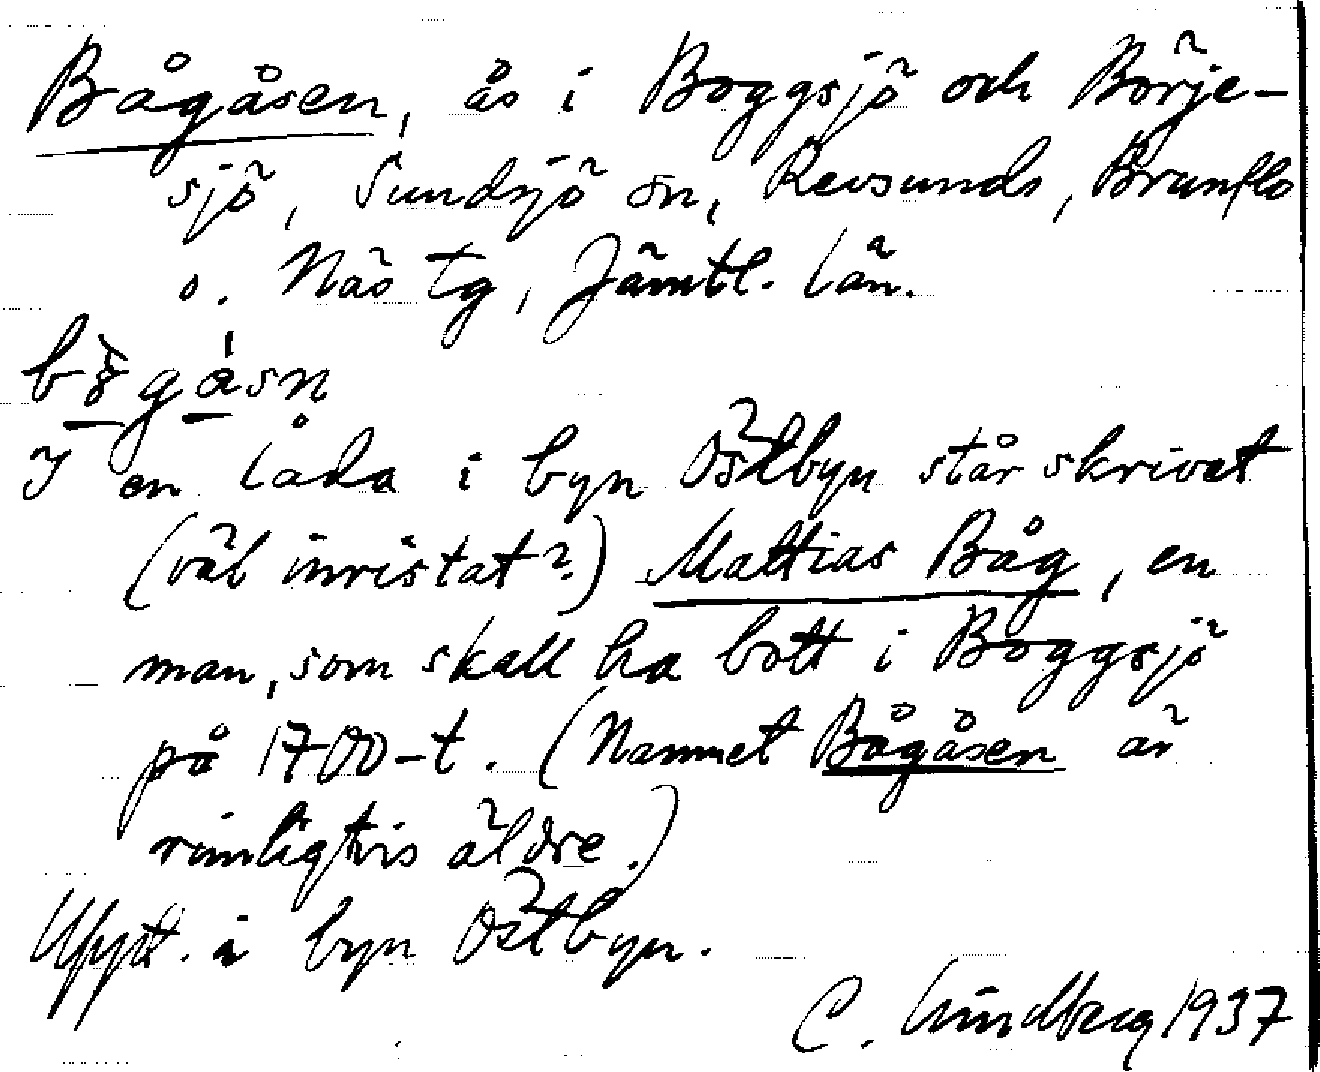 Bågåsen, ås i Boggsjö och Börje-
sjö, Sundsjö sn, Revsunds, Brunflo
o. Näs tg, Jämtl. län.
I en lada i byn Östbyn står skrivet
(väl inristat?) Mattias Båg, en
man, som skall ha bott i Boggsjö
på 1700-t. (Namnet Bågåsen är
rimligtvis äldre.)
Uppt. i byn Östbyn.
C. Lindberg 1937